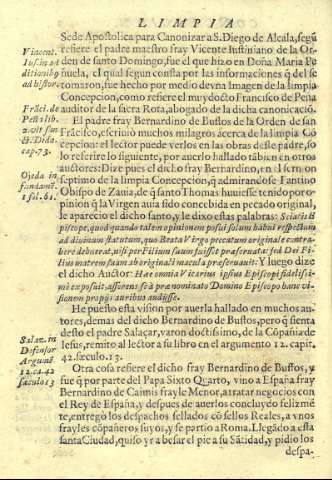 LIMPIA
Sede Apostolica para Canonizar a S. Diego de Alcala, segũ
refiere el padre maestro fray Vicente Iustiniano de la Or-
den de santo Domingo, fue el que hizo en Doña Maria Pe
ñuela, el qual segun consta por las informaciones q̃ del se
tomaron, fue hecho por medio devna Imagen de la limpia
Concepcion, como refiere el muy docto Francisco de Peña
auditor de la sacra Rota, abogado de la dicha canonizació.
El padre fray Bernardino de Bustos de la Orden de san
Frãcisco, escriuiò muchos milagros acerca de la limpia Có
cepcion: el lector puede verlos en las obras deste padre, so
lo referire lo siguiente, por auerlo hallado tãbien en otros
auctores: Dize pues el dicho fray Bernardino, en el sermon
septimo de la limpia Concepcion, q̃ admirandose Fantino
Obispo de
que santo Thomas huuiesse tenido por o-
pinion q̃ la Virgen auia sido concebida en pecado original,
le aparecio el dicho santo, y le dixo estas palabras: Scias ò E
piscope, quod quando talem opinionem posui solum habui respectum
ad diuinum statutum, quo Beata Virgo peccatum originale contra-
here debuerat, nisi per Filium suum fuisset præseruata: sed Dei Fi-
lius matrem suam ab originali macula præseruauit: Y luego dize
el dicho Auctor: Hæc omnia Vicarius ipsius Episcopi fidelissi-
mè exposuit, asserens se à prænominato Domino Episcopo hanc vi-
sionem proprijs auribus audisse.
He puesto esta vision por auerla hallado en muchos au-
tores, demas del dicho Bernardino de Bustos, pero q̃ sienta
desto el padre Salaçar, varon doctissimo, de la Cõpañia de
Iesus, remito al lector a su libro en el argumento 12. capit.
42. sæculo. 13.
Otra cosa refiere el dicho fray Bernardino de Bustos, y
fue q̃ por parte del Papa Sixto Quarto, vino a España fray
Bernardino de Caimis frayle Menor, a tratar negocios con
el Rey de España, y despues de auerlos concluydo felizmẽ
te, entregò los despachos sellados cõ sellos Reales, a vnos
frayles cõpañeros suyos, y se partio a Roma. Llegádo a esta
santa Ciudad, quiso yr a besar el pie a su Sãtidad, y pidio los
despa-
Vincent.
Ius. in ad
ditionibꝰ
ad histor.
Frãci. de
Peña lib.
2. vit. san
cti Didac.
cap. 73.
Ojeda in
fundamẽ.
1 fol. 61.
Salaz. in
Defensor
Argumẽ.
12. ca. 42
sæculo 13